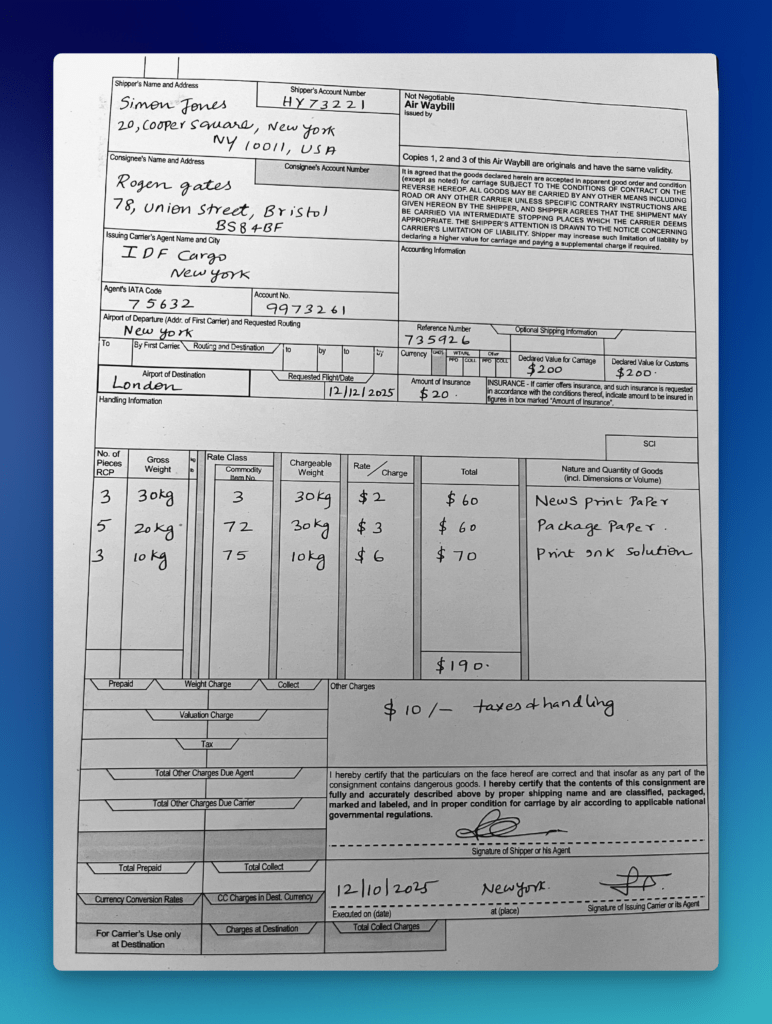 Shipper's Name and Address
Shipper's Account Number
HY73221
Simon Jones
20, Cooper Square, New York
NY 10011, USA
Not Negotiable
Air Waybill
Issued by
Copies 1, 2 and 3 of this Air Waybill are originals and have the same validity.
Consignee's Name and Address
Consignee's Account Number
Rogen gates
78, Union Street, Bristol
BS8 4BF
It is agreed that the goods declared herein are accepted in apparent good order and condition
(except as noted) for carriage SUBJECT TO THE CONDITIONS OF CONTRACT ON THE
REVERSE HEREOF. ALL GOODS MAY BE CARRIED BY ANY OTHER MEANS INCLUDING
ROAD OR ANY OTHER CARRIER UNLESS SPECIFIC CONTRARY INSTRUCTIONS ARE
GIVEN HEREON BY THE SHIPPER, AND SHIPPER AGREES THAT THE SHIPMENT MAY
BE CARRIED VIA INTERMEDIATE STOPPING PLACES WHICH THE CARRIER DEEMS
APPROPRIATE. THE SHIPPER'S ATTENTION IS DRAWN TO THE NOTICE CONCERNING
CARRIER'S LIMITATION OF LIABILITY. Shipper may increase such limitation of liability by
declaring a higher value for carriage and paying a supplemental charge if required.
Issuing Carrier's Agent Name and City
IDF Cargo
New york
Accounting Information
Agent's IATA Code
75632
Account No.
9973261
Airport of Departure (Addr. of First Carrier) and Requested Routing
New york
Reference Number
735926
Optional Shipping Information
To
By First Carrier
Routing and Destination
to
by
to
by
Currency
CHGS
WT/VAL
Other
PPD
COLL
PPD
COLL
Declared Value for Carriage
$200
Declared Value for Customs
$200.
Airport of Destination
London
Requested Flight/Date
12/12/2025
Amount of Insurance
$20.
INSURANCE - If carrier offers insurance, and such insurance is requested
in accordance with the conditions thereof, indicate amount to be insured in
figures in box marked "Amount of Insurance".
Handling Information
SCI
No. of Pieces RCP
Gross Weight
kg
lb
Rate Class
Commodity Item No.
Chargeable Weight
Rate / Charge
Total
Nature and Quantity of Goods (incl. Dimensions or Volume)
3 30kg 3 30kg $2 $60 News print Paper
5 20kg 72 30kg $3 $60 Package Paper.
3 10kg 75 10kg $6 $70 Print Ink Solution
$190.
Prepaid
Weight Charge
Collect
Other Charges
$10/- taxes & handling
Valuation Charge
Tax
Total Other Charges Due Agent
Total Other Charges Due Carrier
I hereby certify that the particulars on the face hereof are correct and that insofar as any part of the
consignment contains dangerous goods. I hereby certify that the contents of this consignment are
fully and accurately described above by proper shipping name and are classified, packaged,
marked and labeled, and in proper condition for carriage by air according to applicable national
governmental regulations.
Signature of Shipper or his Agent
Total Prepaid
Total Collect
Currency Conversion Rates
CC Charges in Dest. Currency
12/10/2025 New york.
Executed on (date)
at (place)
Signature of Issuing Carrier or its Agent
For Carrier's Use only
at Destination
Charges at Destination
Total Collect Charges